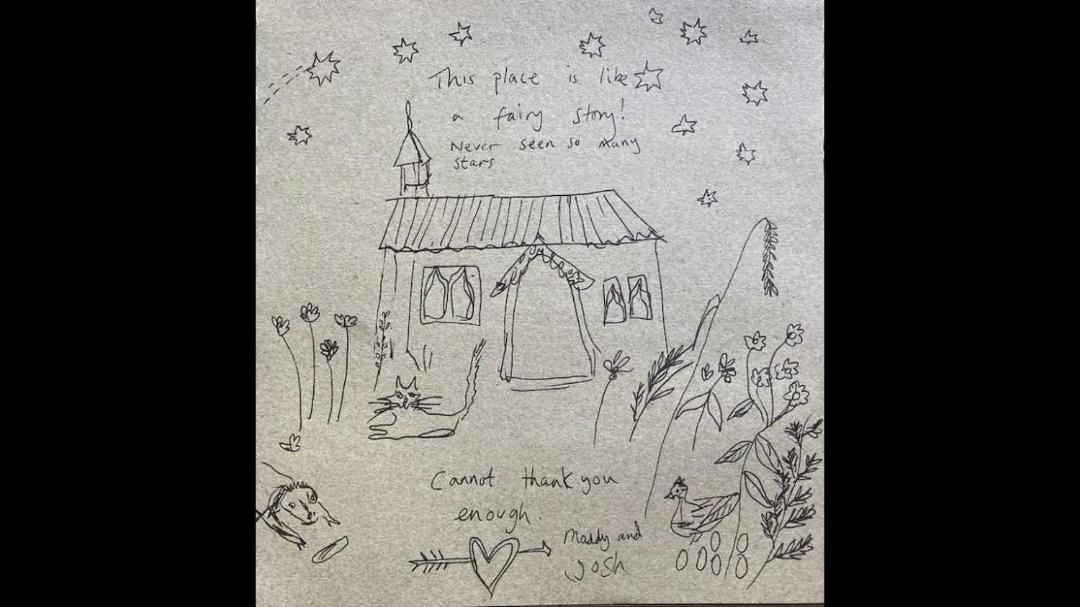 This place is like
a fairy story!
Never seen so many
stars
Cannot thank you
enough.
Maddy and
Josh